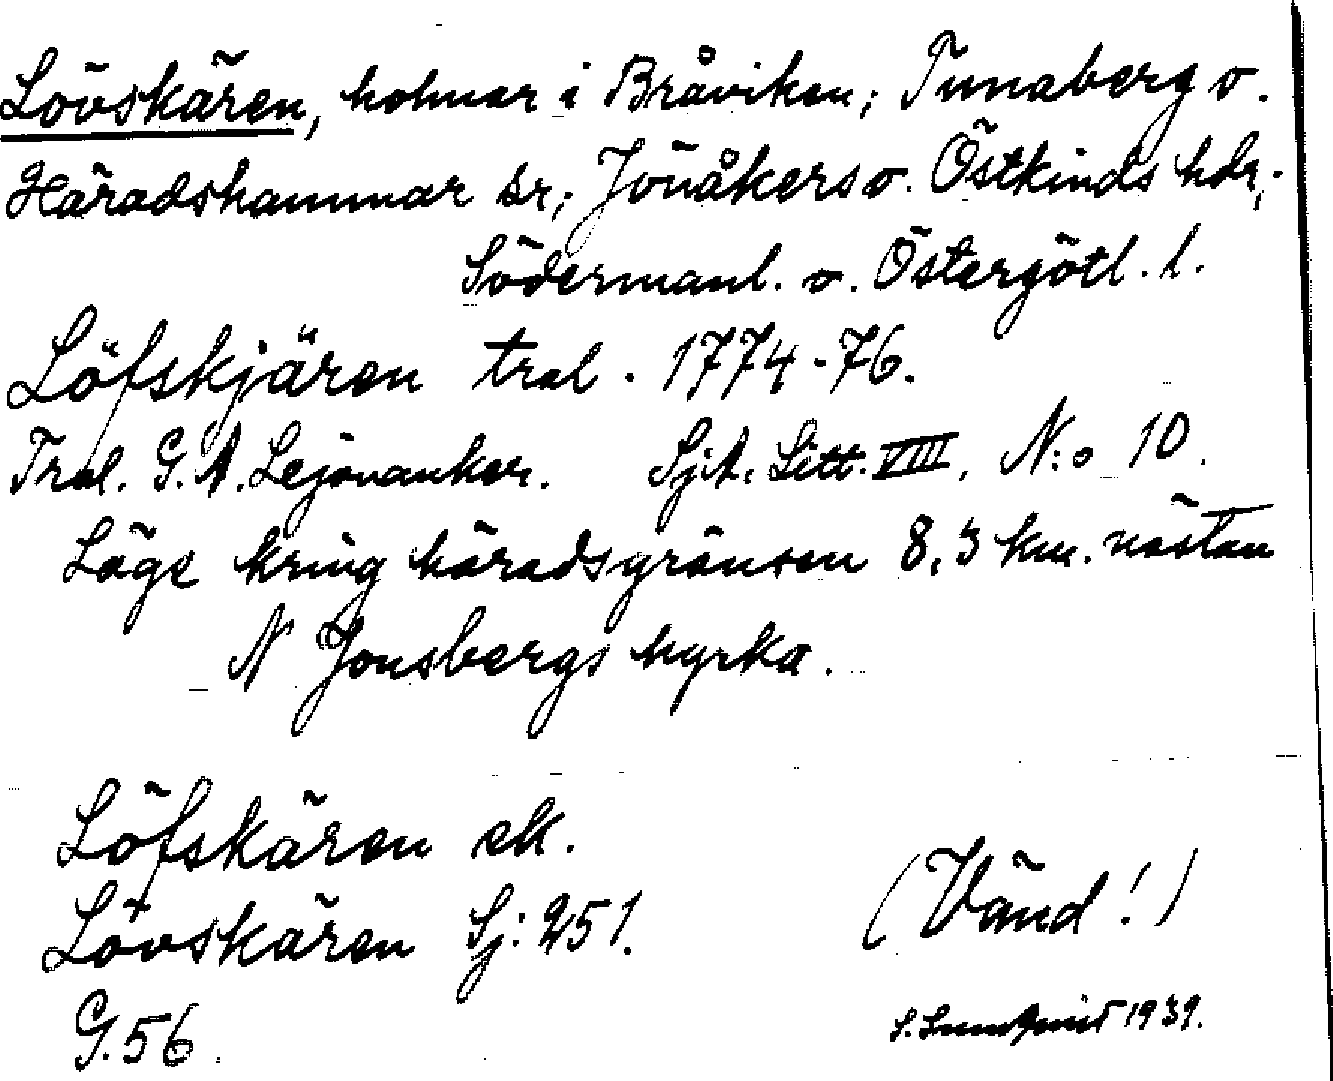 Lövskären, holmar i Bråviken; Tunaberg o.
Häradshammar sr; Jönåkers o. Östkinds hdr;
Södermanl. o. Östergötl. l.
Löfskjären tral. 1774-76.
Tral. G. A. Lejonanker. Sjk. Litt. VIII, N:o 10.
Läge kring häradsgränsen 8,3 km. nästan
N Jonsbergs kyrka.
Löfskären ek.
Lövskären Sj: 251.
(Vänd!)
G. 56.
S. Lundqvist 1939.